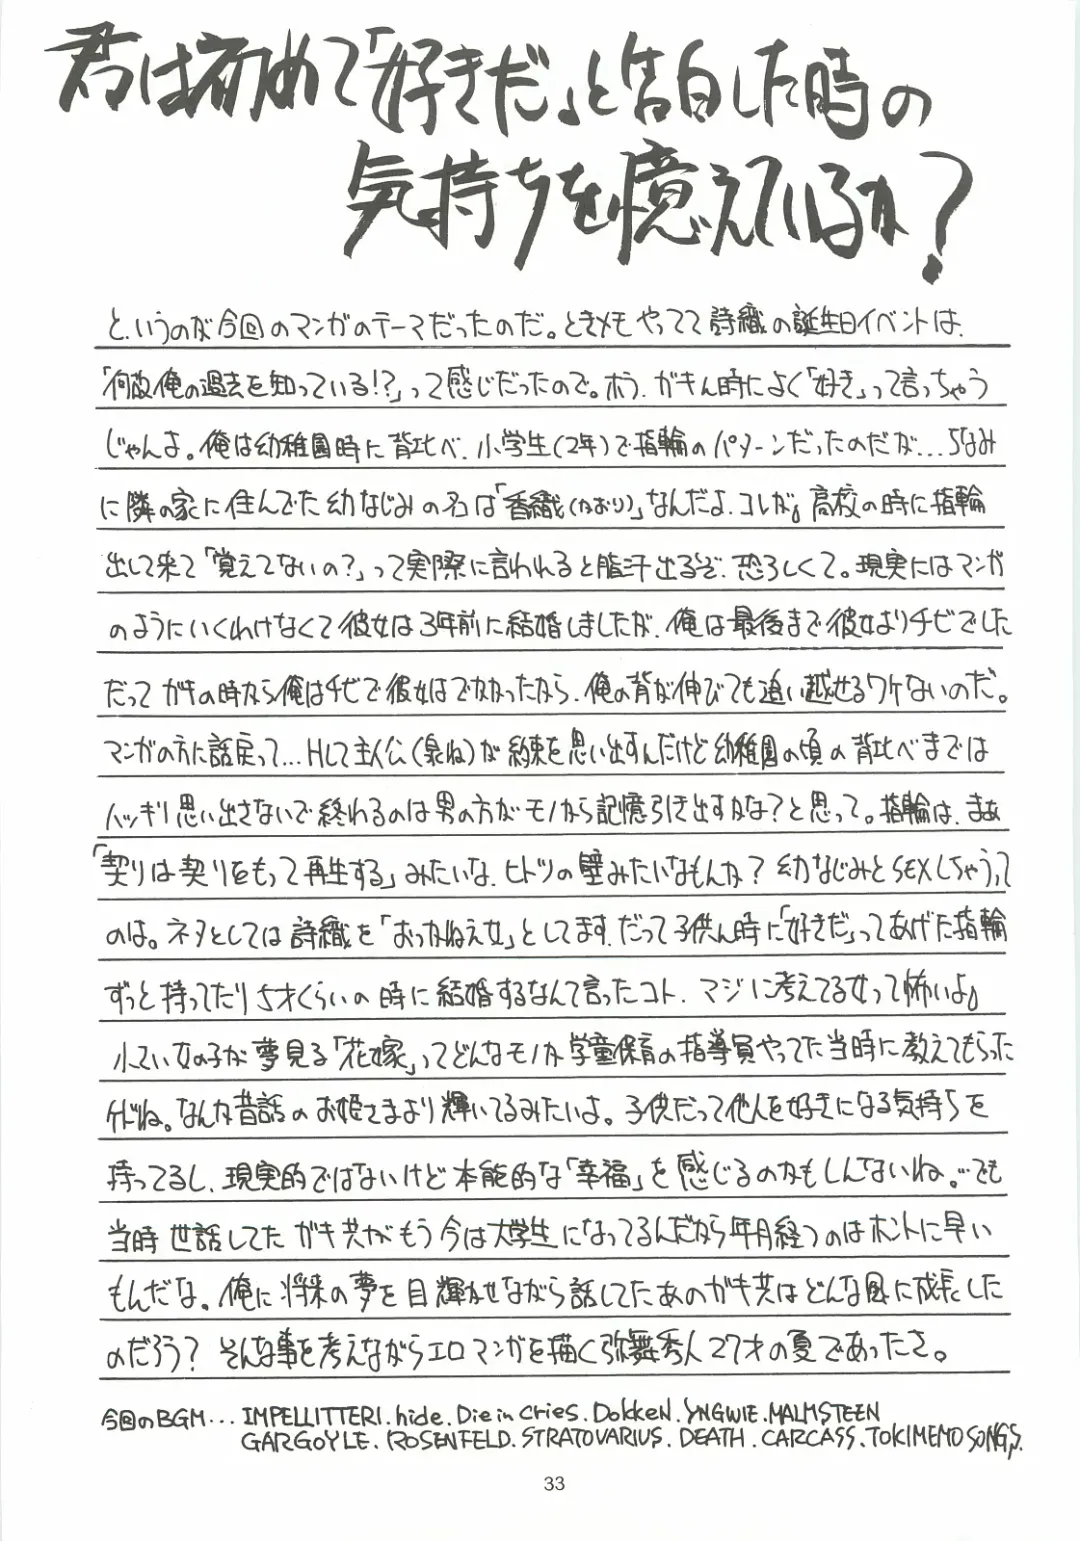 君は初めて「好きだ」と告白した時の
気持ちを憶えているか?
というのが今回のマンガのテーマだったのだ。ときメモやってて詩織の誕生日イベントは、
「何故俺の過去を知っている!?」って感じだったので。ホラ、ガキん時によく「好き」って言っちゃう
じゃんよ。俺は幼稚園時に背比べ、小学生(2年)で指輪のパターンだったのだが…ちなみ
に隣の家に住んでた幼なじみの名は「香織(かおり)」なんだよ、コレが。高校の時に指輪
出して来て「覚えてないの?」って実際に言われると脂汗出るぞ、恐ろしくて。現実にはマンガ
のようにいくわけなくて彼女は3年前に結婚しましたが、俺は最後まで彼女よりチビでした
だってガキの時から俺はチビで彼女はでかかったから、俺の背が伸びても追い越せるワケないのだ。
マンガの方に話戻って…Hして主人公(泉ね)が約束を思い出すんだけど幼稚園の頃の背比べまでは
ハッキリ思い出さないで終わるのは男の方がモノから記憶引き出すかな?と思って。指輪は、まぁ
「契りは契りをもって再生する」みたいな、ヒトツの壁みたいなもんか?幼なじみとSEXしちゃうって
のは。ネタとしては詩織を「おっかねえ女」としてます、だって子供ん時に「好きだ」ってあげた指輪
ずっと持ってたり5才くらいの時に結婚するなんて言ったコト、マジに考えてる女って怖いよ。
小さい女の子が夢見る「花嫁」ってどんなモノか学童保育の指導員やってた当時に教えてもらった
けどね。なんか昔話のお姫さまより輝いてるみたいよ。子供だって他人を好きになる気持ちを
持ってるし、現実的ではないけど本能的な「幸福」を感じるのかもしんないね。…でも
当時世話してたガキ共がもう今は大学生になってるんだから年月経つのはホントに早い
もんだな。俺に将来の夢を目輝かせながら話してたあのガキ共はどんな風に成長した
のだろう?そんな事を考えながらエロマンガを描く弥舞秀人27才の夏であったさ。
今回のBGM...IMPELLITTERI.hide.Die in Cries.DOKKEN.YNGWIE.MALMSTEEN
GARGOYLE.ROSENFELD.STRATOVARIUS.DEATH.CARCASS.TOKIMEMO SONGS.
33